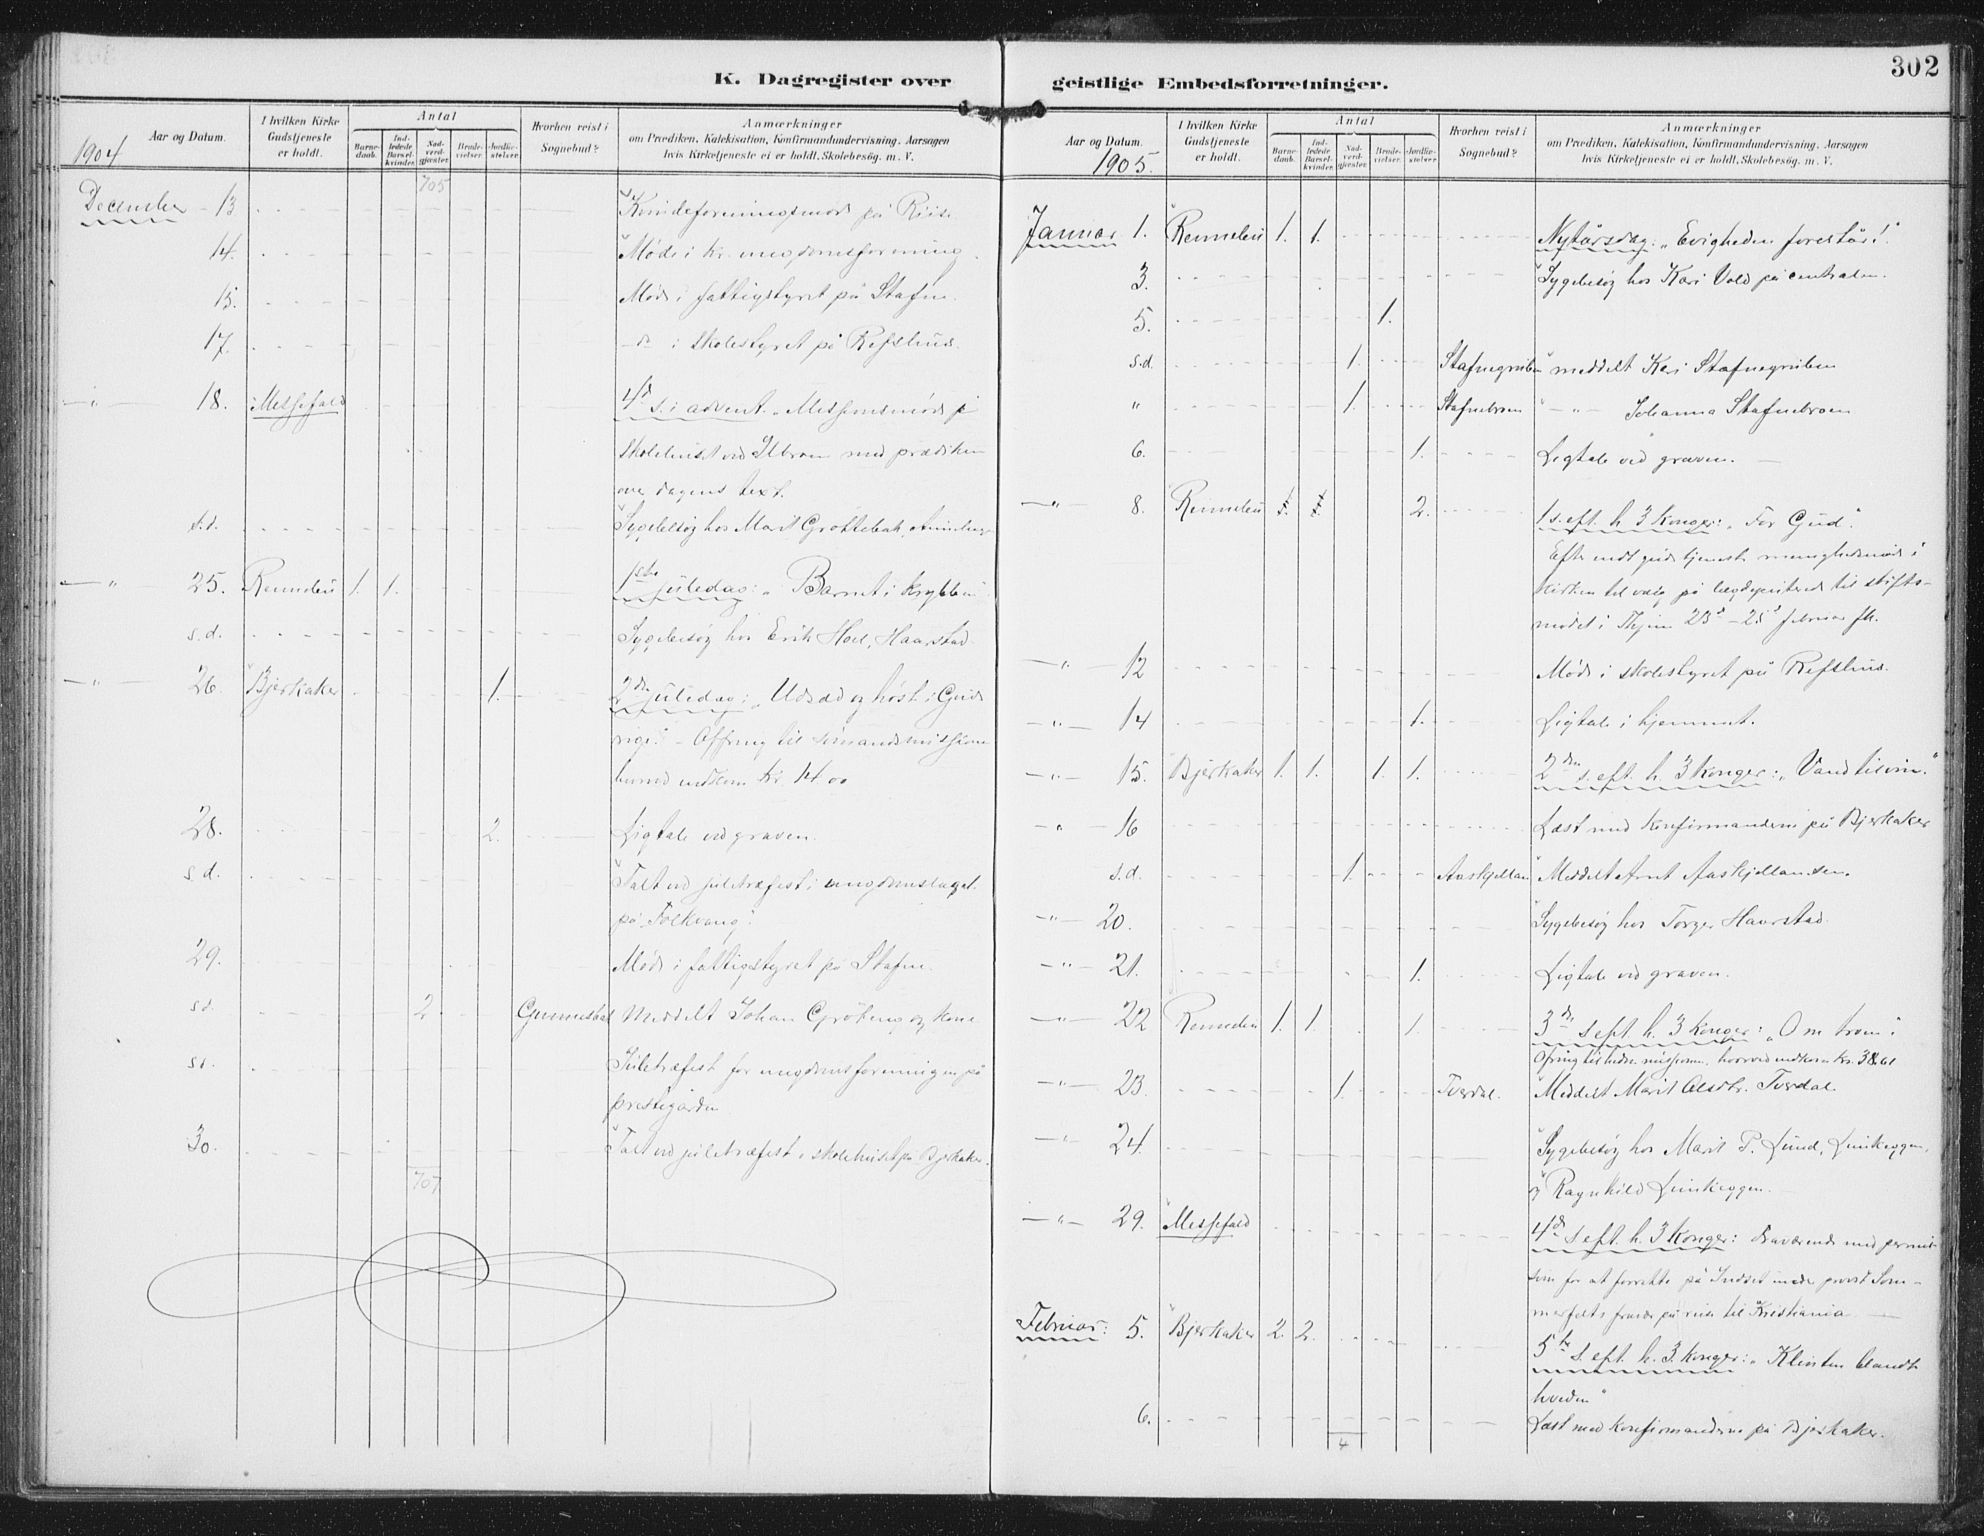 K. Dagregister over
geistlige Embedsforretninger.
302
Aar og Datum. I hvilken Kirke Gudstjeneste er holdt. Antal Barnedaab. Indledede Barselkvinder. Nadverdgjester. Brudevielser. Jordfæstelser. Hvorhen reist i Sognebud? Anmærkninger om Prædiken, Katekisation, Konfirmandundervisning, Aarsagen hvis Kirketjeneste ei er holdt, Skolebesøg. m. V.
1904
705
December 13 Kvindeforeningsmøde på Riise
14. Møde i kr. ungdomsforening.
15. Møde i fattigstyret på Stafne.
17. do i skolestyret på Refshus.
" 18. Messefald 4de s. i advent. Missionsmøde på
skolehuset ved Ulbroen med prædiken
over dagens text.
s.d. Sygebesøg hos Marit Grøttebak,
" 25. Rennebu 1. 1. 1ste juledag: "Barnet i krybben"
s.d. Sygebesøg hos Erik Hoel, Haarstad.
" 26. Bjerkaker 1. 2den juledag: "Udsæd og høst i Guds
rige." - Offring til sømandsmissionen
hvorved indkom kr. 14.00
28. 2. Ligtale ved graven.
s.d. Talt ved juletræfest i ungdomslaget
på "Folkvang".
29. Møde i fattigstyret på Stafne.
s.d. 2. Gunnesbak Meddelt Johan Grøteng og kone
s.d. Juletræfest for ungdomsforeningen på
prestegården
30. Talt ved juletræfest i skolehuset på Bjerkaker.
707
Aar og Datum. I hvilken Kirke Gudstjeneste er holdt. Antal Barnedaab. Indledede Barselkvinder. Nadverdgjester. Brudevielser. Jordfæstelser. Hvorhen reist i Sognebud? Anmærkninger om Prædiken, Katekisation, Konfirmandundervisning, Aarsagen hvis Kirketjeneste ei er holdt, Skolebesøg. m. V.
1905.
Januar 1. Rennebu 1. 1. Nytårsdag: "Evigheden forestår!"
3. Sygebesøg hos Kari Vold på centralen.
5. 1.
s.d. 1. Stafnegruben meddelt Kari Stafnegruben
" 1. Stafnebroen " Johanna Stafnebroen
6. 1. Ligtale ved graven.
" 8. Rennebu 2. 1 s. eft. h. 3 Konger: "For Gud".
Efter endt gudstjeneste menighedsmøde i
kirken til valg på lægdeputerede til stifts-
mødet i Thjem 23de - 25de februar
" 12 Møde i skolestyret på Refshus.
" 14 1. Ligtale i hjemmet.
" 15. Bjerkaker 1. 1. 1. 1. 2den s. eft. h. 3 konger: "Vand til vin."
" 16 Læst med konfirmanderne på Bjerkaker
s.d. 1. Meddelt Arnt
" 20. Sygebesøg hos Torger Haarstad.
" 21. 1. Ligtale ved graven.
" 22 Rennebu 1. 1. 1. 3de s. eft. h. 3 konger: "Om troen".
Ofring til hedn. missionen, hvorved indkom kr. 38.61
" 23. 1. Tverdal. Meddelt Marit Olsdtr. Tverdal.
" 24. Sygebesøg hos Marit P. Lund,
og Ragnhild
" 29. Messefald 4de s. eft. h. 3 Konger: Fraværende med permis-
sion for at forrette på Indset under provst Som-
merfelts fravær på reise til Kristiania
Februar: 5. Bjerkaker 2. 2. 5te s. eft. h. 3. konger: "Klinten blandt
hveden"
6. Læst med konfirmanderne på Bjerkaker.
4